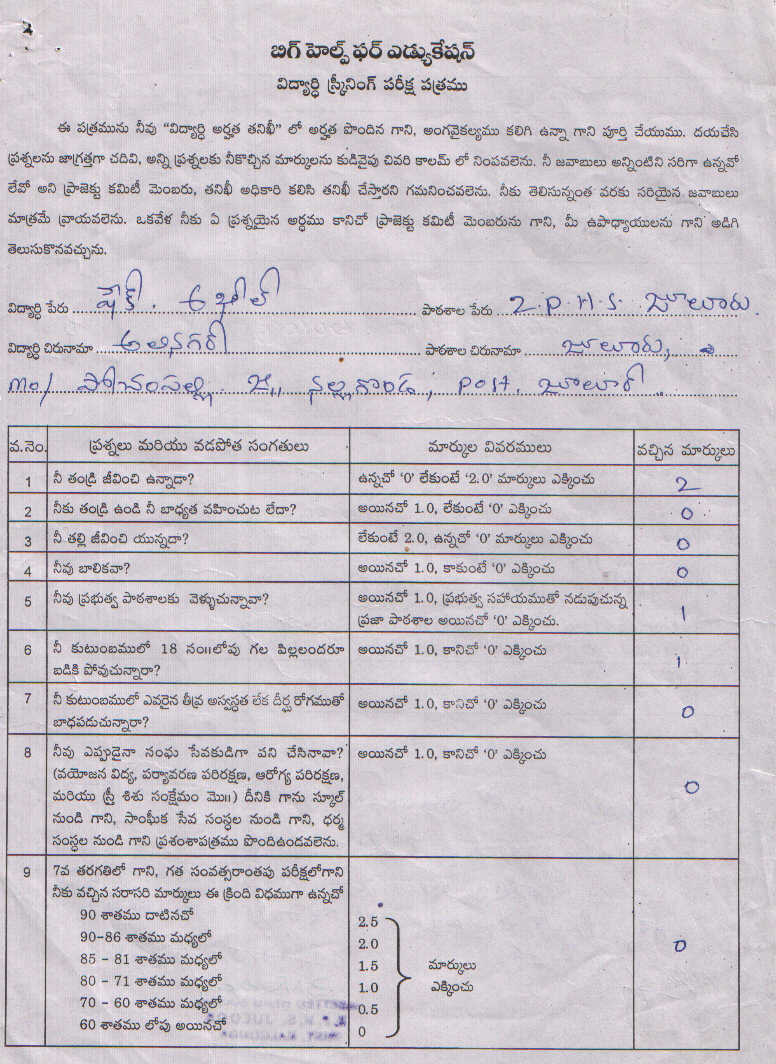 బిగ్ హెల్ప్ ఫర్ ఎడ్యుకేషన్
విద్యార్ధి స్క్రీనింగ్ పరీక్ష పత్రము
ఈ పత్రమును నీవు “విద్యార్ధి అర్హత తనిఖీ” లో అర్హత పొందిన గాని, అంగవైకల్యము కలిగి ఉన్నా గాని పూర్తి చేయుము. దయచేసి
ప్రశ్నలను జాగ్రత్తగా చదివి, అన్ని ప్రశ్నలకు నీకొచ్చిన మార్కులను కుడివైపు చివరి కాలమ్ లో నింపవలెను. నీ జవాబులు అన్నింటివి సరిగా ఉన్నవో
లేవో అని ప్రాజెక్టు కమిటీ మెంబరు, తనిఖీ అధికారి కలిసి తనిఖీ చేస్తారని గమనించవలెను. నీకు తెలిసున్నంత వరకు సరియైన జవాబులు
మాత్రమే వ్రాయవలెను. ఒకవేళ నీకు ఏ ప్రశ్నయైన అర్ధము కానిచో ప్రాజెక్టు కమిటీ మెంబరును గాని, మీ ఉపాధ్యాయులను గాని అడిగి
తెలుసుకొనవచ్చును.
విద్యార్ధి పేరు షేక్. పాఠశాల పేరు Z.P.H.S. జూలూరు.
విద్యార్ధి చిరునామా పాఠశాల చిరునామా జూలూరు,
పోచంపల్లి, జి,, నల్లగొండ, Post. జూలూర్
వ.నెం. ప్రశ్నలు మరియు వడపోత సంగతులు మార్కుల వివరములు వచ్చిన మార్కులు
1 నీ తండ్రి జీవించి ఉన్నాడా? ఉన్నచో ‘0’ లేకుంటే ‘2.0’ మార్కులు ఎక్కించు 2
2 నీకు తండ్రి ఉండి నీ బాధ్యత వహించుట లేదా? అయినచో 1.0, లేకుంటే ‘0’ ఎక్కించు 0
3 నీ తల్లి జీవించి యున్నదా? లేకుంటే 2.0, ఉన్నచో ‘0’ మార్కులు ఎక్కించు 0
4 నీవు బాలికవా? అయినచో 1.0, కాకుంటే ‘0’ ఎక్కించు 0
5 నీవు ప్రభుత్వ పాఠశాలకు వెళ్ళుచున్నావా? అయినచో 1.0, ప్రభుత్వ సహాయముతో నడుపుచున్న
ప్రజా పాఠశాల అయినచో ‘0’ ఎక్కించు. 1
6 నీ కుటుంబములో 18 సం॥లోపు గల పిల్లలందరూ అయినచో 1.0, కానిచో ‘0’ ఎక్కించు 1
బడికి పోవుచున్నారా?
7 నీ కుటుంబములో ఎవరైన తీవ్ర అస్వస్థత లేక దీర్ఘ రోగముతో అయినచో 1.0, కానిచో ‘0’ ఎక్కించు 0
బాధపడుచున్నారా?
8 నీవు ఎప్పుడైనా సంఘ సేవకుడిగా పని చేసినావా? అయినచో 1.0, కానిచో ‘0’ ఎక్కించు
(వయోజన విద్య, పర్యావరణ పరిరక్షణ, ఆరోగ్య పరిరక్షణ,
మరియు స్త్రీ శిశు సంక్షేమం మొ॥) దీనికి గాను స్కూల్ 0
నుండి గాని, సాంఘీక సేవ సంస్ధల నుండి గాని, ధర్మ
సంస్ధల నుండి గాని ప్రశంశాపత్రము పొందిఉండవలెను.
9 7వ తరగతిలో గాని, గత సంవత్సరాంతపు పరీక్షలోగాని
నీకు వచ్చిన సరాసరి మార్కులు ఈ క్రింది విధముగా ఉన్నచో
90 శాతము దాటినచో 2.5
90-86 శాతము మధ్యలో 2.0 0
85 - 81 శాతము మధ్యలో 1.5 మార్కులు
80 - 71 శాతము మధ్యలో 1.0 ఎక్కించు
70 - 60 శాతము మధ్యలో 0.5
60 శాతము లోపు అయినచో 0